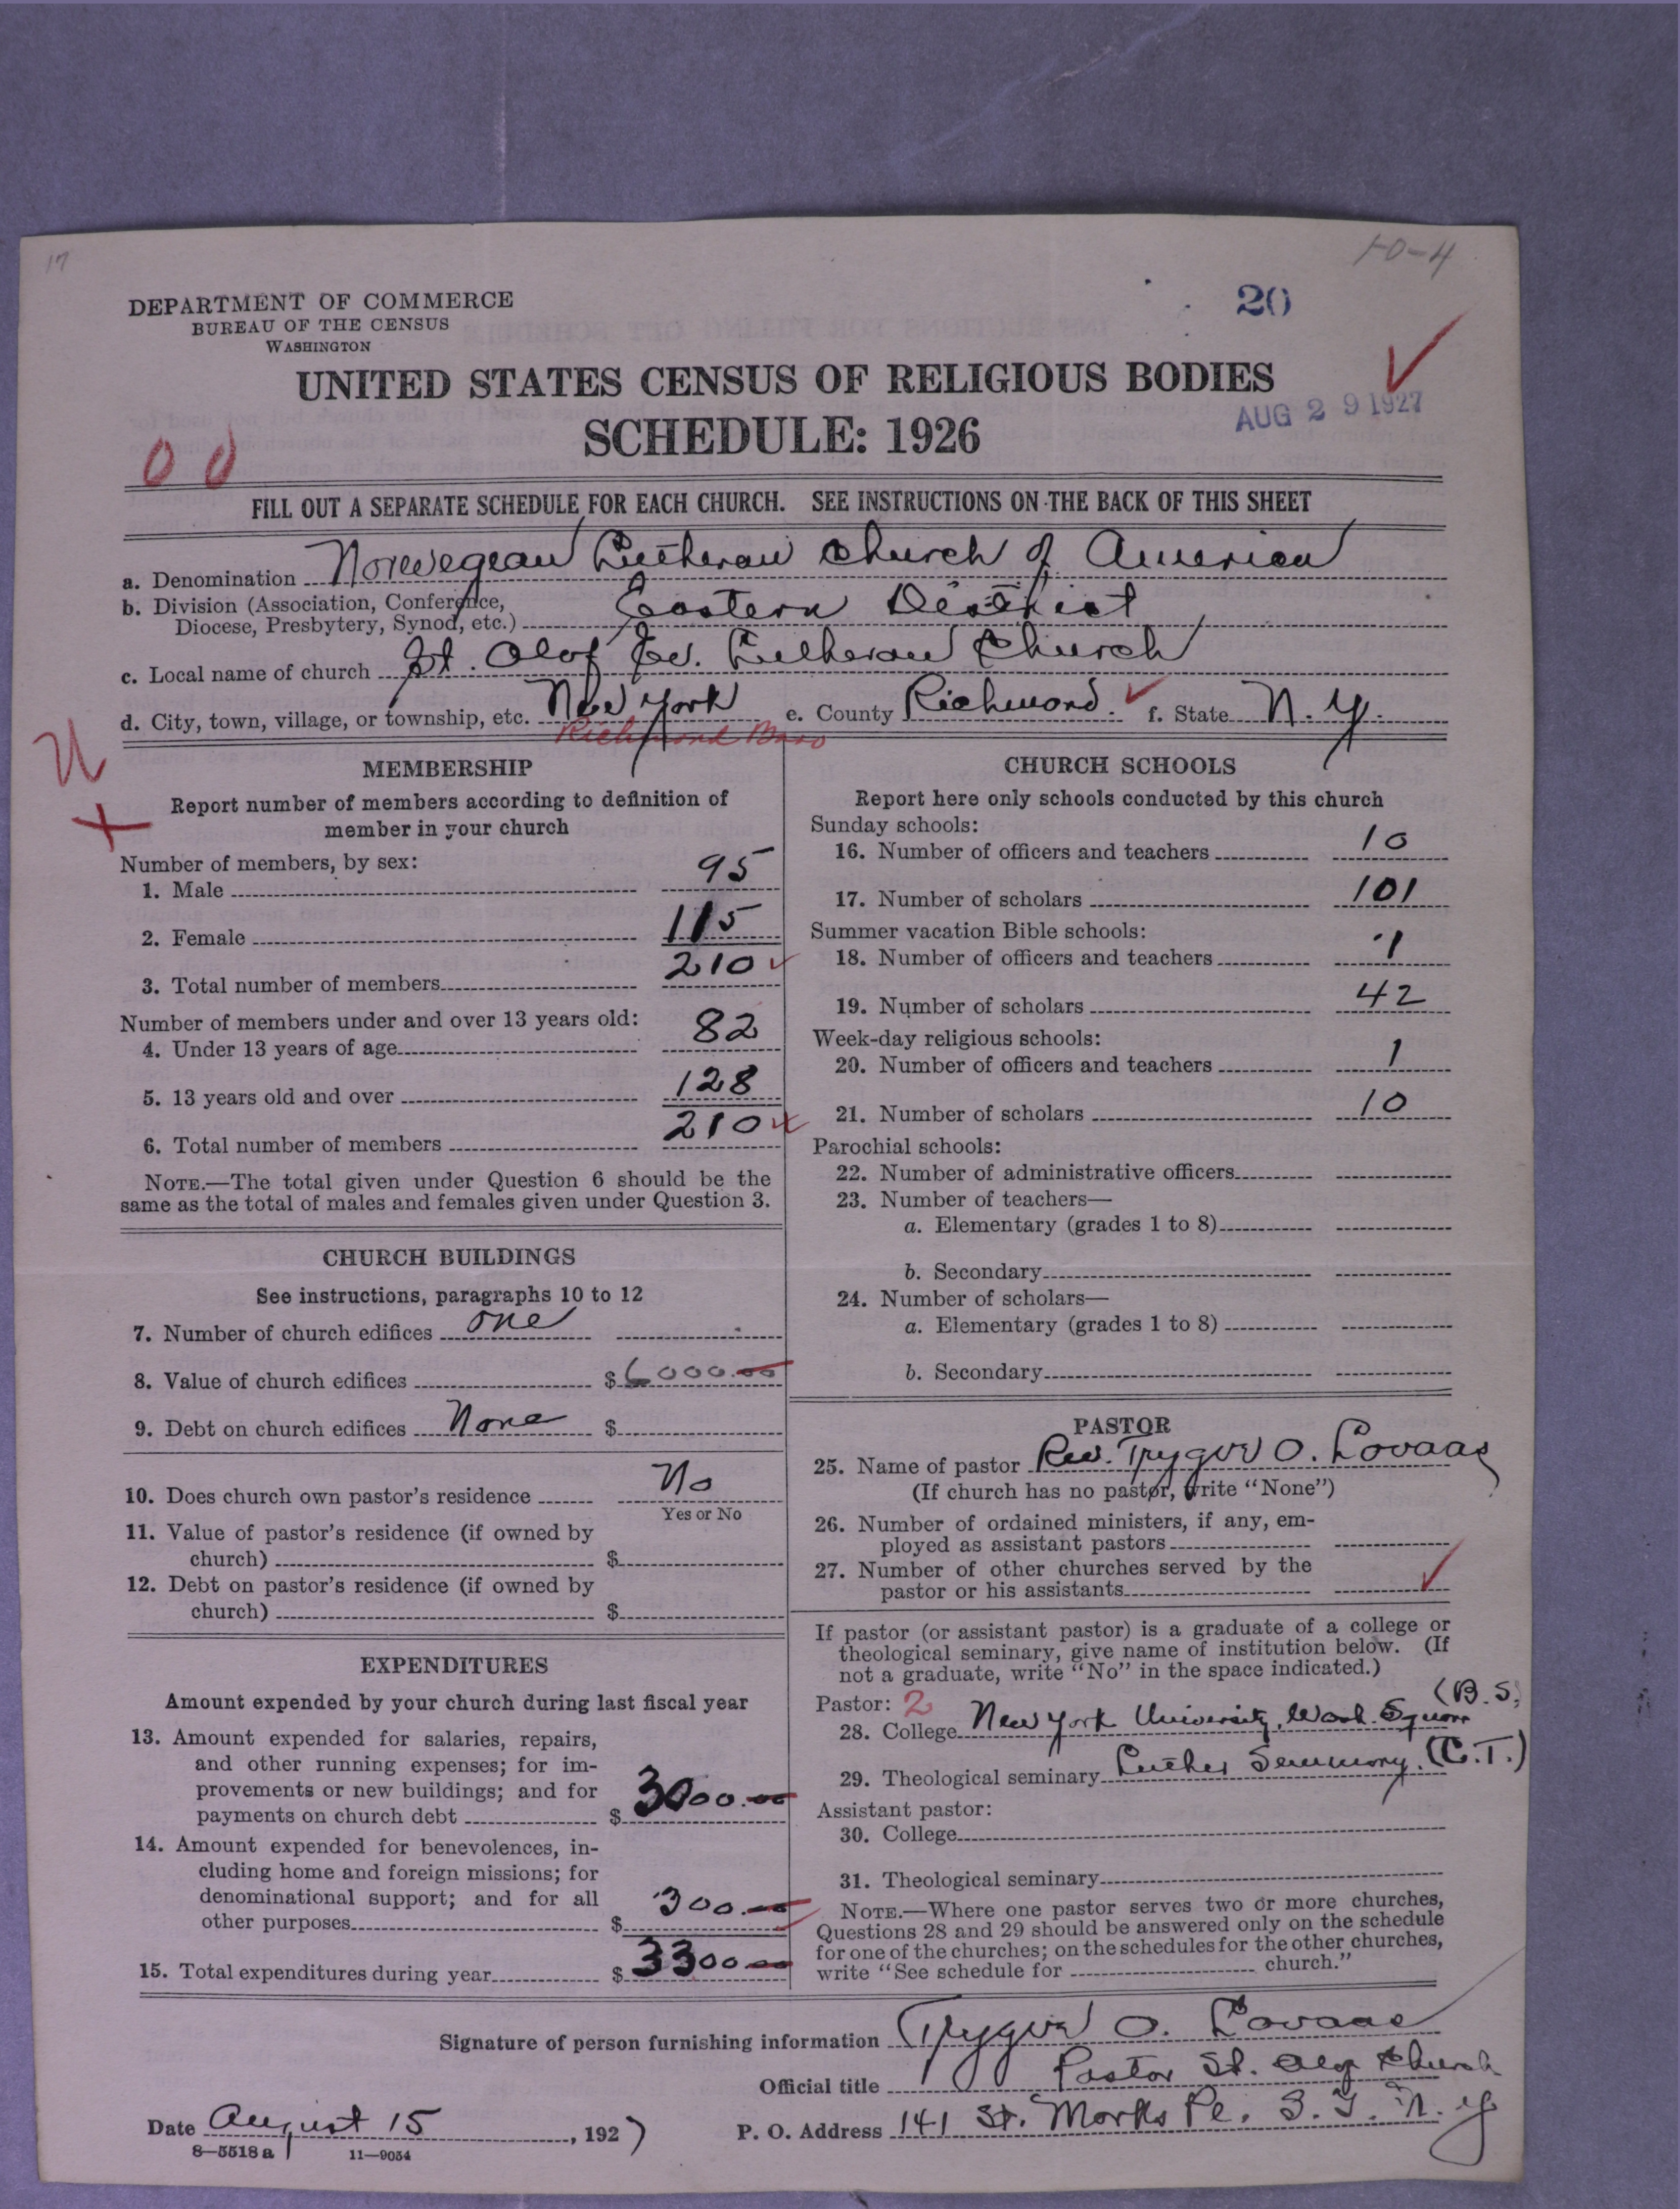 17
10-4
DEPARTMENT OF COMMERCE
BUREAU OF THE CENSUS
WASHINGTON
20
UNITED STATES CENSUS OF RELIGIOUS BODIES
SCHEDULE: 1926
AUG 29 1927
00
FILL OUT A SEPARATE SCHEDULE FOR EACH CHURCH. SEE INSTRUCTIONS ON THE BACK OF THIS SHEET
a. Denomination Norwegean Lutheran Church of America
b. Division (Association, Conference,
Diocese, Presbytery, Synod, etc.) Eastern District
c. Local name of church St. Olaf Ev. Lutheran Church
d. City, town, village, or township, etc. New York e. County Richmond. f. State N. Y.
Richmond Boro
MEMBERSHIP
Report number of members according to definition of
member in your church
Number of members, by sex:
1. Male 95
2. Female 115
3. Total number of members 210
Number of members under and over 13 years old:
4. Under 13 years of age 82
5. 13 years old and over 128
6. Total number of members 210
NOTE.—The total given under Question 6 should be the
same as the total of males and females given under Question 3.
CHURCH BUILDINGS
See instructions, paragraphs 10 to 12
7. Number of church edifices one
8. Value of church edifices $6000.00
9. Debt on church edifices None $
10. Does church own pastor's residence No
Yes or No
11. Value of pastor's residence (if owned by
church) $
12. Debt on pastor's residence (if owned by
church) $
EXPENDITURES
Amount expended by your church during last fiscal year
13. Amount expended for salaries, repairs,
and other running expenses; for im-
provements or new buildings; and for
payments on church debt $3000.00
14. Amount expended for benevolences, in-
cluding home and foreign missions; for
denominational support; and for all
other purposes $300.
15. Total expenditures during year $3300
CHURCH SCHOOLS
Report here only schools conducted by this church
Sunday schools:
16. Number of officers and teachers 10
17. Number of scholars 101
Summer vacation Bible schools:
18. Number of officers and teachers 1
19. Number of scholars 42
Week-day religious schools:
20. Number of officers and teachers 1
21. Number of scholars 10
Parochial schools:
22. Number of administrative officers
23. Number of teachers—
a. Elementary (grades 1 to 8)
b. Secondary
24. Number of scholars—
a. Elementary (grades 1 to 8)
b. Secondary
PASTOR
25. Name of pastor Rev. Trygve O. Lovaas
(If church has no pastor, write "None")
26. Number of ordained ministers, if any, em-
ployed as assistant pastors
27. Number of other churches served by the
pastor or his assistants
If pastor (or assistant pastor) is a graduate of a college or
theological seminary, give name of institution below. (If
not a graduate, write "No" in the space indicated.)
Pastor: 2 (B.S.
28. College New York University, Wash. Square
29. Theological seminary Luther Seminary. (C.T.)
Assistant pastor:
30. College
31. Theological seminary
NOTE.—Where one pastor serves two or more churches,
Questions 28 and 29 should be answered only on the schedule
for one of the churches; on the schedules for the other churches,
write "See schedule for church."
Signature of person furnishing information Trygve O. Lovaas
Official title Pastor St. Olaf Church
Date August 15, 1927 P. O. Address 141 St. Marks Pl. S. I. N. Y
8—5518 a 11—9054